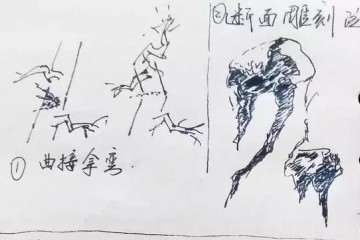 ① 曲接拿弯.
② 断面雕刻